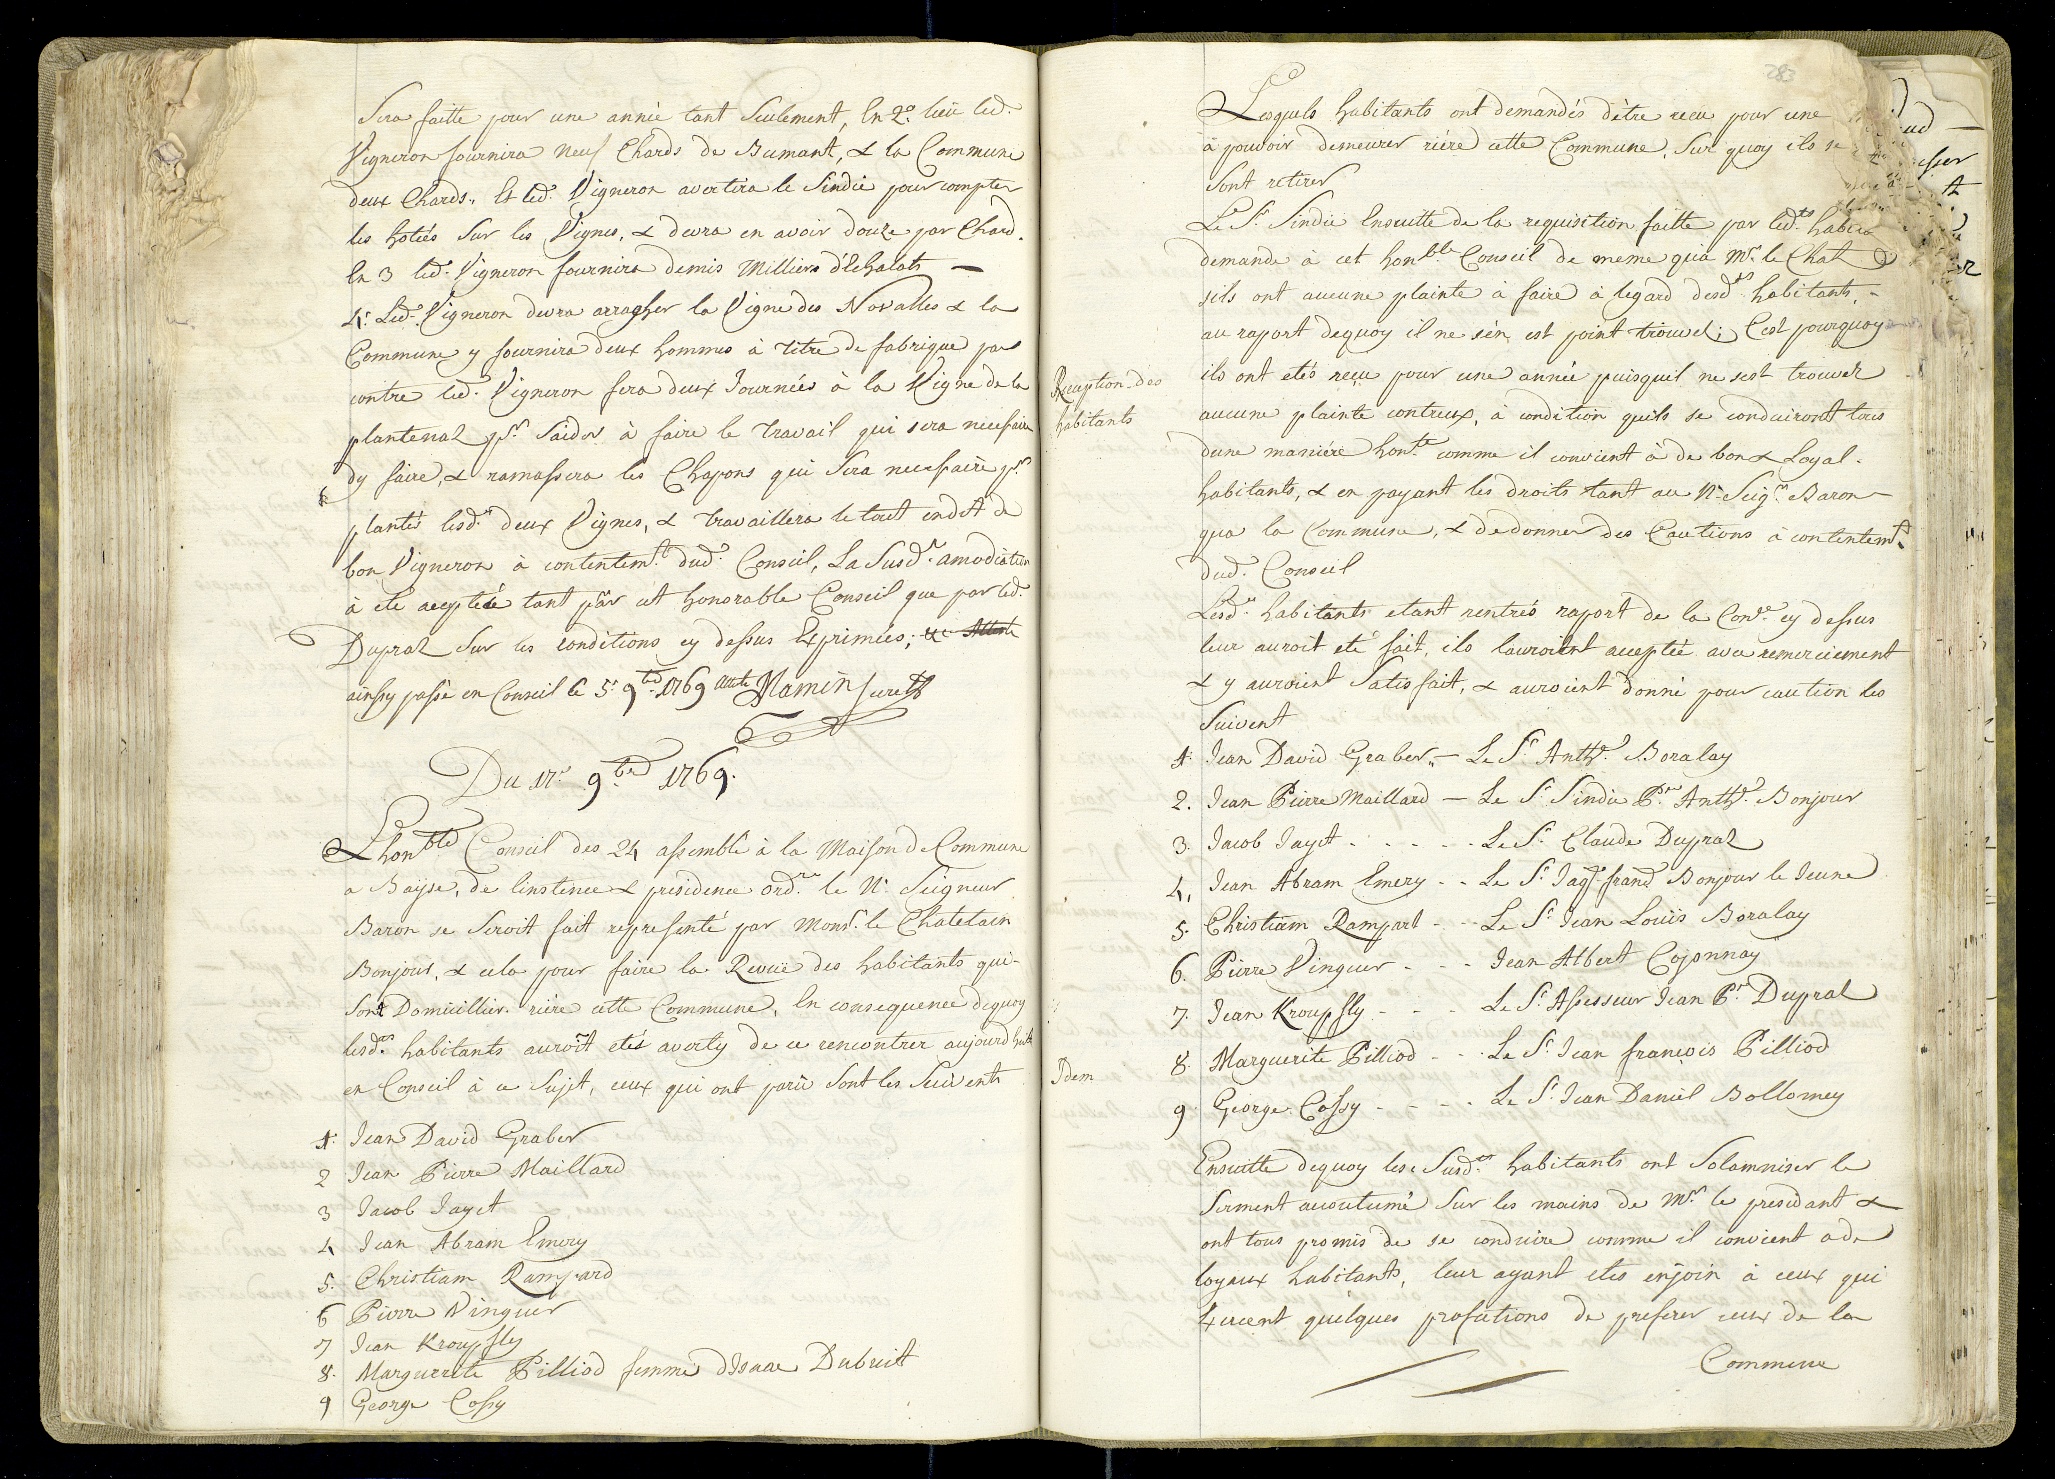 Sera faitte pour une année tant Seulement, En 2.º lieu led.
Vigneron fournira neuf Chards de Bumant, & la Commune
deux Chards,, Et led. Vigneron avertira le Sindic pour compter
les hotiés Sur les Vignes, & devra en avoir douze par Chard.
En 3 led. Vigneron fournira demis Milliers d'Echalats —
4. Led. Vigneron devra arracher la Vigne des Novalles & la
Commune y fournira deux hommes à Titre de fabrique par
contre led. Vigneron fera deux Journées à la Vigne de la
plantenaz pr. Saider à faire le Travail qui sera necessaire
dy faire, & ramassera les Chapons qui Sera necessaire pr.
plantés lesd. deux Vignes, & Travaillera le tout endet de
bon Vigneron à contentemt. dud. Conseil, La Susd. amodiation
à eté acceptéé tant par cet honorable Conseil que par led.
Dupraz Sur les conditions cy dessus Exprimées;
ainsy passé en Conseil le 5. 9bre 1769 atteste Mamin Secrett
Du 17e 9bre 1769.
Lhonble Conseil des 24 assemblé à la Maison de Commune
a Bayse, de linstence & présidence ordre. le Ne. Seigneur
Baron se Seroit fait representé par Monsr. le Chatelain
Bonjour, & cela pour faire la Revuë des habitants qui-
Sont Domicillier. riére cette Commune, En consequence dequoy
lesdes. habitants auroit etés averty de ce rencontrer aujourdhuit
en Conseil à ce Sujet, ceux qui ont parû Sont les Suivents
1. Jean David Graber
2 Jean Pierre Maillard
3 Jacob Jayet
4 Jean Abram Emery
5. Christiam Rampard
6 Pierre Vinguer
7 Jean Kroupfly
8. Marguerite Pilliod femme dIsaac Dubruit
9 George Cossy
283
Lesquels habitants ont demandés dêtre reçu pour une
à pouvoir demeurer riére cette Commune, Sur quoy ils se
Sont retirer
Le Sr. Sindic Ensuitte de la requisition faitte par led.ts habita
demande à cet honble. Conseil de meme quà Mr. le Chat
sils ont aucune plainte à faire à legard desdts. habitants, -
au raport dequoy il ne sén est point trouvez; C'est pourquoy
Reception des
habitants
ils ont etés reçu pour une année puisquil ne sest trouvez
aucune plainte contreux, à condition quils se conduiront tous
dune maniére honte. comme il convient à de bon & Loyal.
habitants, & en payant les droits tant au Ne. Seigr. Baron-
qua la Commune, & de donner des Cautions à contentemt.
dud. Conseil
Lesd. habitants etant rentrés raport de la Cone. cy dessus
leur auroit eté fait, ils lauroient acceptée avec remerciement
& y auroient Satisfait, & auroient donné pour caution les
Suivent
1. Jean David Graber,, — Le Sr. Anthe. Boralay
2. Jean Pierre Maillard — Le Sr. Sindic Pre. Anthe. Bonjour
3. Jacob Jayet . . . . . Le Sr. Claude Dupraz
4, Jean Abram Emery . . Le Sr. Jaqs. frand Bonjour le Jeune
5. Christiam Rampart - - Le Sr. Jean Louis Boralay
6. Pierre Vinguer . . . Jean Albert Cojonnay
7. Jean Kroupfly - - - Le Sr. Assesseur Jean Pre. Dupraz
Idem
8. Marguerite Pilliod - - . Le Sr. Jean françois Pilliod
9. George Cossy - - - . Le Sr. Jean Daniel Bollomey
Ensuitte dequoy les Susdes. habitants ont Solamniser le
Serment acoutumé Sur les mains de Mr. le presidant &
ont tous promis de se conduire comme il convient a de
loyaux habitants, leur ayant etes enjoin à ceux qui
Exercent quelques profestions de preferer ceux de la
Commune